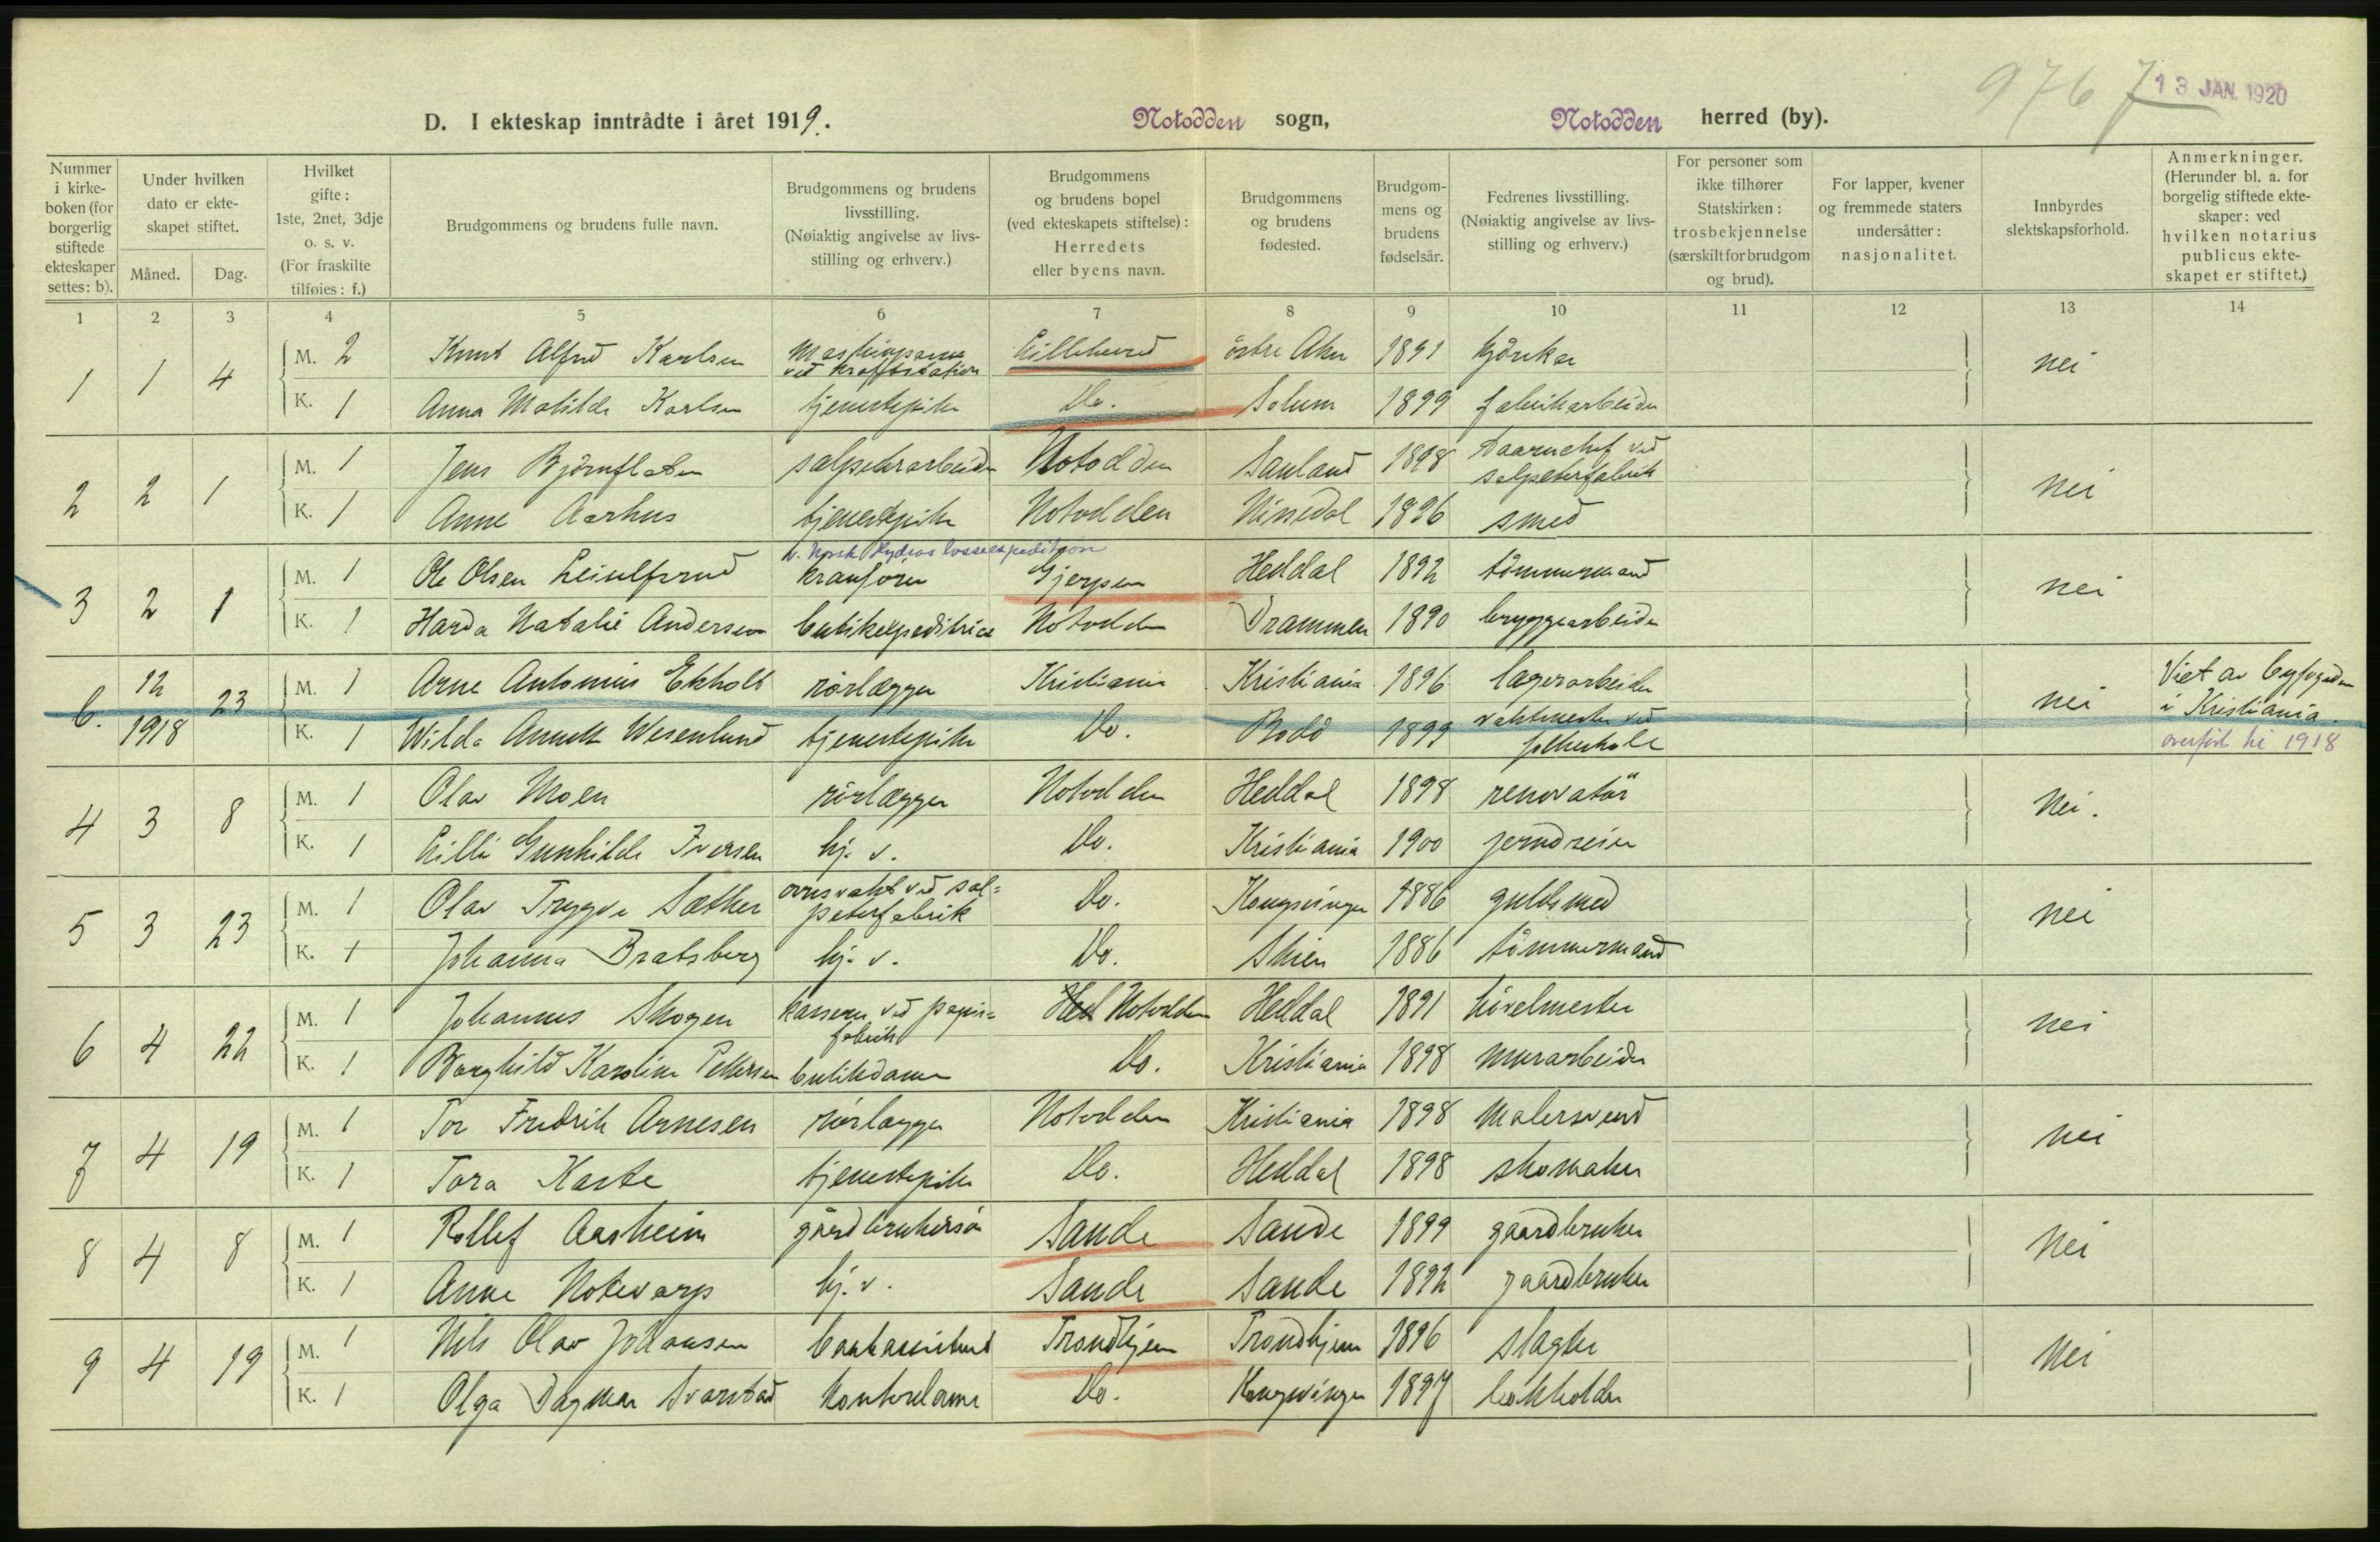 9767
13 JAN. 1920
D. I ekteskap inntrådte i året 1919. Notodden sogn, Notodden herred (by).
Nummer i kirke-boken (for borgerlig stiftede ekteskaper settes: b).
Under hvilken dato er ekte-skapet stiftet.
Måned. Dag.
Hvilket gifte: 1ste, 2net, 3dje o. s. v. (For fraskilte tilføies: f.)
Brudgommens og brudens fulle navn.
Brudgommens og brudens livsstilling. (Nøiaktig angivelse av livs-stilling og erhverv.)
Brudgommens og brudens bopel (ved ekteskapets stiftelse): Herredets eller byens navn.
Brudgommens og brudens fødested.
Brudgom-mens og brudens fødselsår.
Fedrenes livsstilling. (Nøiaktig angivelse av livs-stilling og erhverv.)
For personer som ikke tilhører Statskirken: trosbekjennelse (særskilt for brudgom og brud).
For lapper, kvener og fremmede staters undersåtter: nasjonalitet.
Innbyrdes slektskapsforhold.
Anmerkninger. (Herunder bl. a. for borgelig stiftede ekte-skaper: ved hvilken notarius publicus ekte-skapet er stiftet.)
1 2 3 4 5 6 7 8 9 10 11 12 13 14
1 1 4 M. 2 Knut Alfred Karlsen maskinpasser ved kraftstation Lilleherred östre Aker 1891 nei
K. 1 Anna Matilde Karlsen tjenestepike Do. Solum 1899 fabrikarbeider
2 2 1 M. 1 Jens Björnflaten salpeterarbeider Notodden Sauland 1898 ved salpeterfabrik nei
K. 1 Anne Aarhus tjenestepike Notodden Nissedal 1896 smed
3 2 1 M. 1 Ole Olsen v. Norsk Hydros losseexpedition kranförer Gjerpen Heddal 1892 tömmermand nei
K. 1 Harda Natalie Andersen butikexpeditrice Notodden Drammen 1890 bryggearbeider
b. 12 1918 23 M. 1 Arne Antonius Ekholt rörlægger Kristiania Kristiania 1896 lagerarbeider nei Viet av byfogden i Kristiania. overfört til 1918
K. 1 Wilda Annette Wesenlund tjenestepike Do. Bodö 1899 vaktmester ved folkeskole
4 3 8 M. 1 Olav Moen rörlægger Notodden Heddal 1898 renovatör Nei.
K. 1 Lilli Gunhilde Iversen hj. v. Do. Kristiania 1900 jerndreier
5 3 23 M. 1 Olav Trygve Sæther ovnsvakt ved sal=peterfabrik Do. Kongsvinger 1886 guldsmed nei
K. 1 Johanna Bratsberg hj. v. Do. Skien 1886 tömmermand
6 4 22 M. 1 Johannes Skogen kasserer ved papir=fabrik Notodden Heddal 1891 hövelmester nei
K. 1 Borghild Karoline Pettersen butikdame Do. Kristiania 1898 murarbeider
7 4 19 M. 1 Tor Fredrik Arnesen rörlægger Notodden Kristiania 1898 Malersvend nei
K. 1 Tora Kaste tjenestepike Do. Heddal 1898 skomaker
8 4 8 M. 1 Rollef Aasheim gårdbrukersön Sande Sande 1899 gaardbruker Nei
K. 1 Anne Notevarp hj. v. Sande Sande 1892 gaardbruker
9 4 19 M. 1 Nils Olav Johansen bankassistent Trondhjem Trondhjem 1896 slagter Nei
K. 1 Olga Dagmar Svarstad kontordame Do. Kongsvinger 1897 bokholder